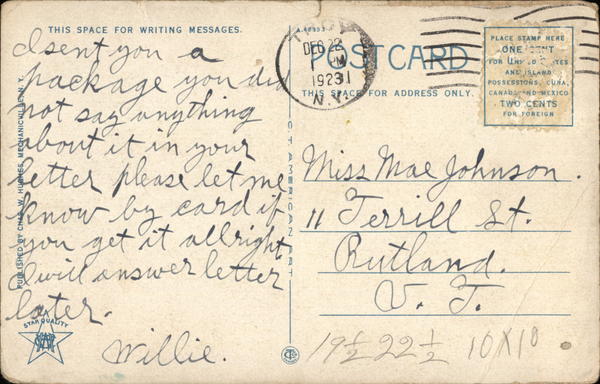 THIS SPACE FOR WRITING MESSAGES.
I sent you a
package you did
not say anything
about it in your
letter please let me
know by card if
you get it allright
I will answer letter
later.
Willie.
STAR QUALITY
PUBLISHED BY CHAS. W. HUGHES, MECHANICVILLE, N. Y.
DEC 22
PM
1923
N.Y.
POST CARD
THIS SPACE FOR ADDRESS ONLY.
PLACE STAMP HERE
ONE CENT
FOR UNITED STATES
AND ISLAND
POSSESSIONS, CUBA,
CANADA AND MEXICO
TWO CENTS
FOR FOREIGN
Miss Mae Johnson.
11 Terrill St.
Rutland.
V. T.
19 1/2 22 1/2 10 X 10